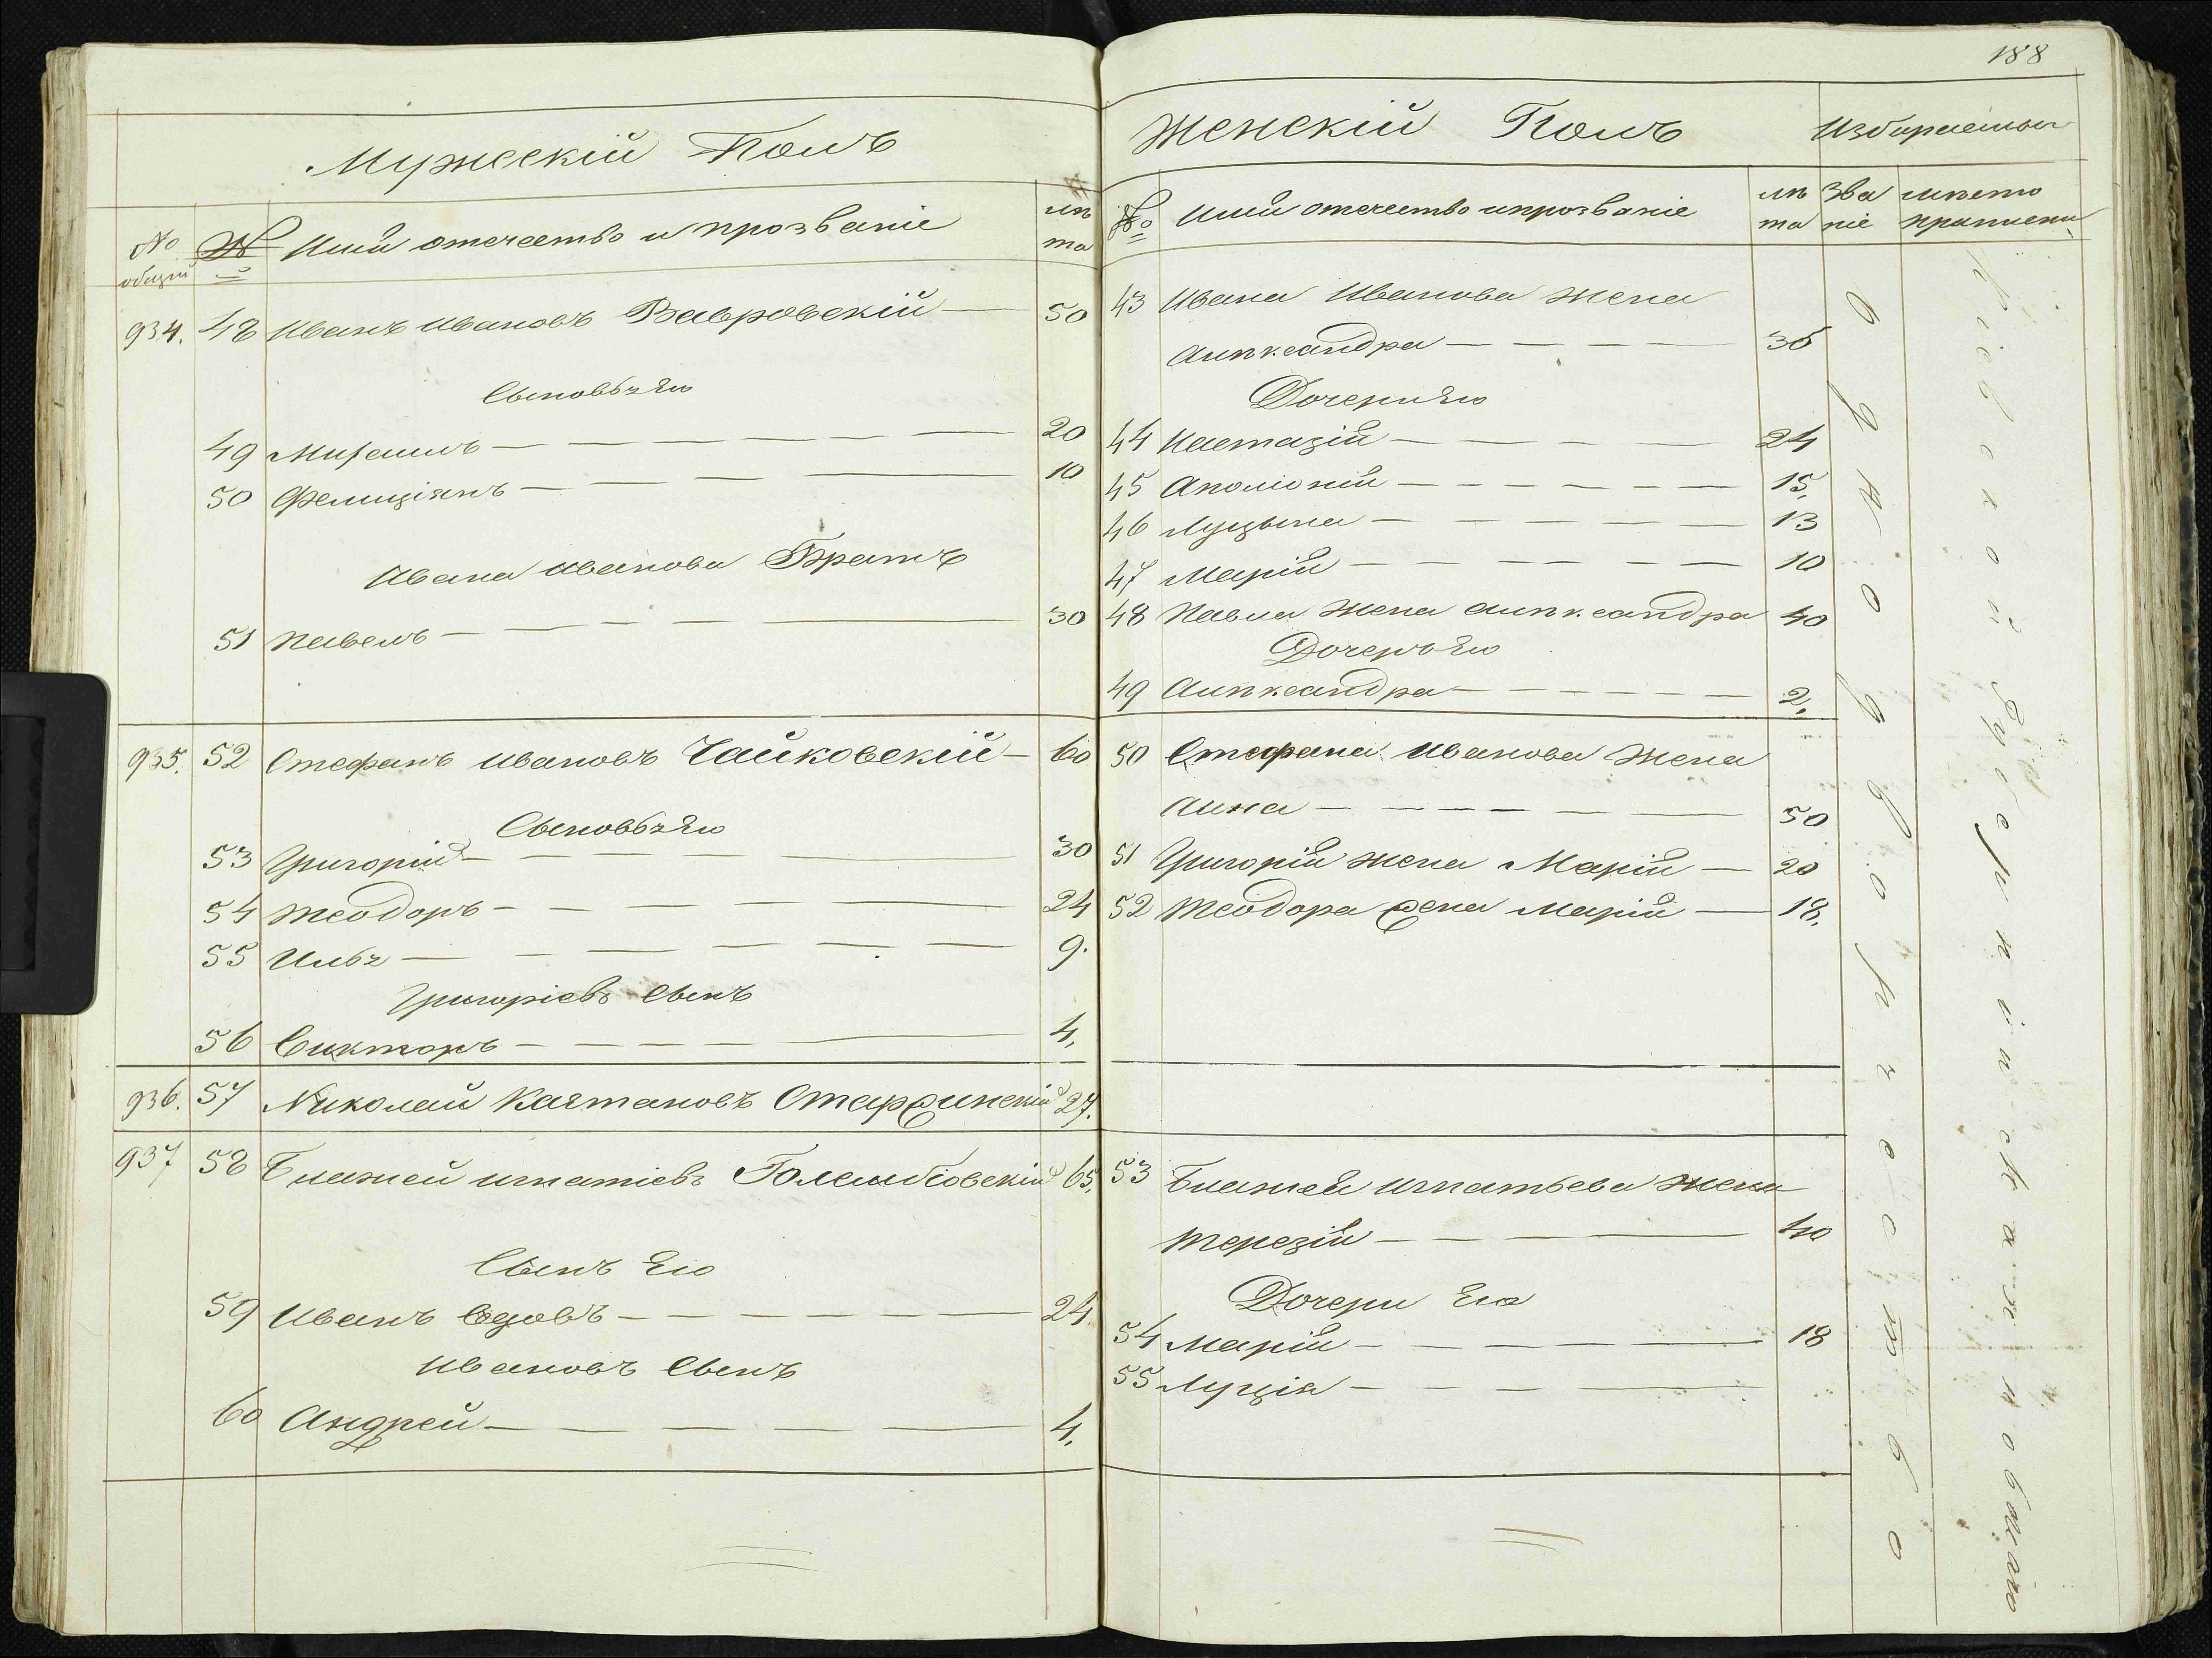 188
Мужескій Полъ
№ общій
№
Имя отечество и прозваніе
лѣта
934. 48 Иванъ Ивановъ Вавровскій — 50
Сыновья Его
49 Михаилъ — 20
50 Фелиціянъ — 10
Ивана Иванова Братъ
51 Павелъ — 30
935. 52 Стефанъ Ивановъ Чайковскій — 60
Сыновья Его
53 Григорій — 30
54 Теодоръ — 24
55 Илья — 9.
Григоріевъ Сынъ
56 Викторъ — 4.
936. 57 Николай Каетановъ Старжинскій 27.
937 58 Блажей ИгнатіевъГолембіовскій 65.
Сынъ Его
59 Иванъ вдовъ — 24
Ивановъ Сынъ
60 Андрей — 4.
Женскій Полъ
Избираемыя
№
Имя отечество и прозваніе
лѣта
Званіе
мѣсто приписки
43 Ивана Иванова жена
Алѣксандра — 36
Дочери Его
44 Настазія — 24
45 Аполіонія — 15.
46 Луцына — 13
47 Марія — 10
48 Павла жена Алѣксандра 40
Дочеръ Его
49 Алѣксандра — 2.
50 Стефана Иванова жена
Анна — 50
51 Григорія жена Марія — 20
52 Теодора жена Марія — 18.
53 Блажея Игнатьева жена
Терезія — 40
Дочери Его
54 Марія — 18
55 Луція —
Однодворчество
Кіевской Губерніи